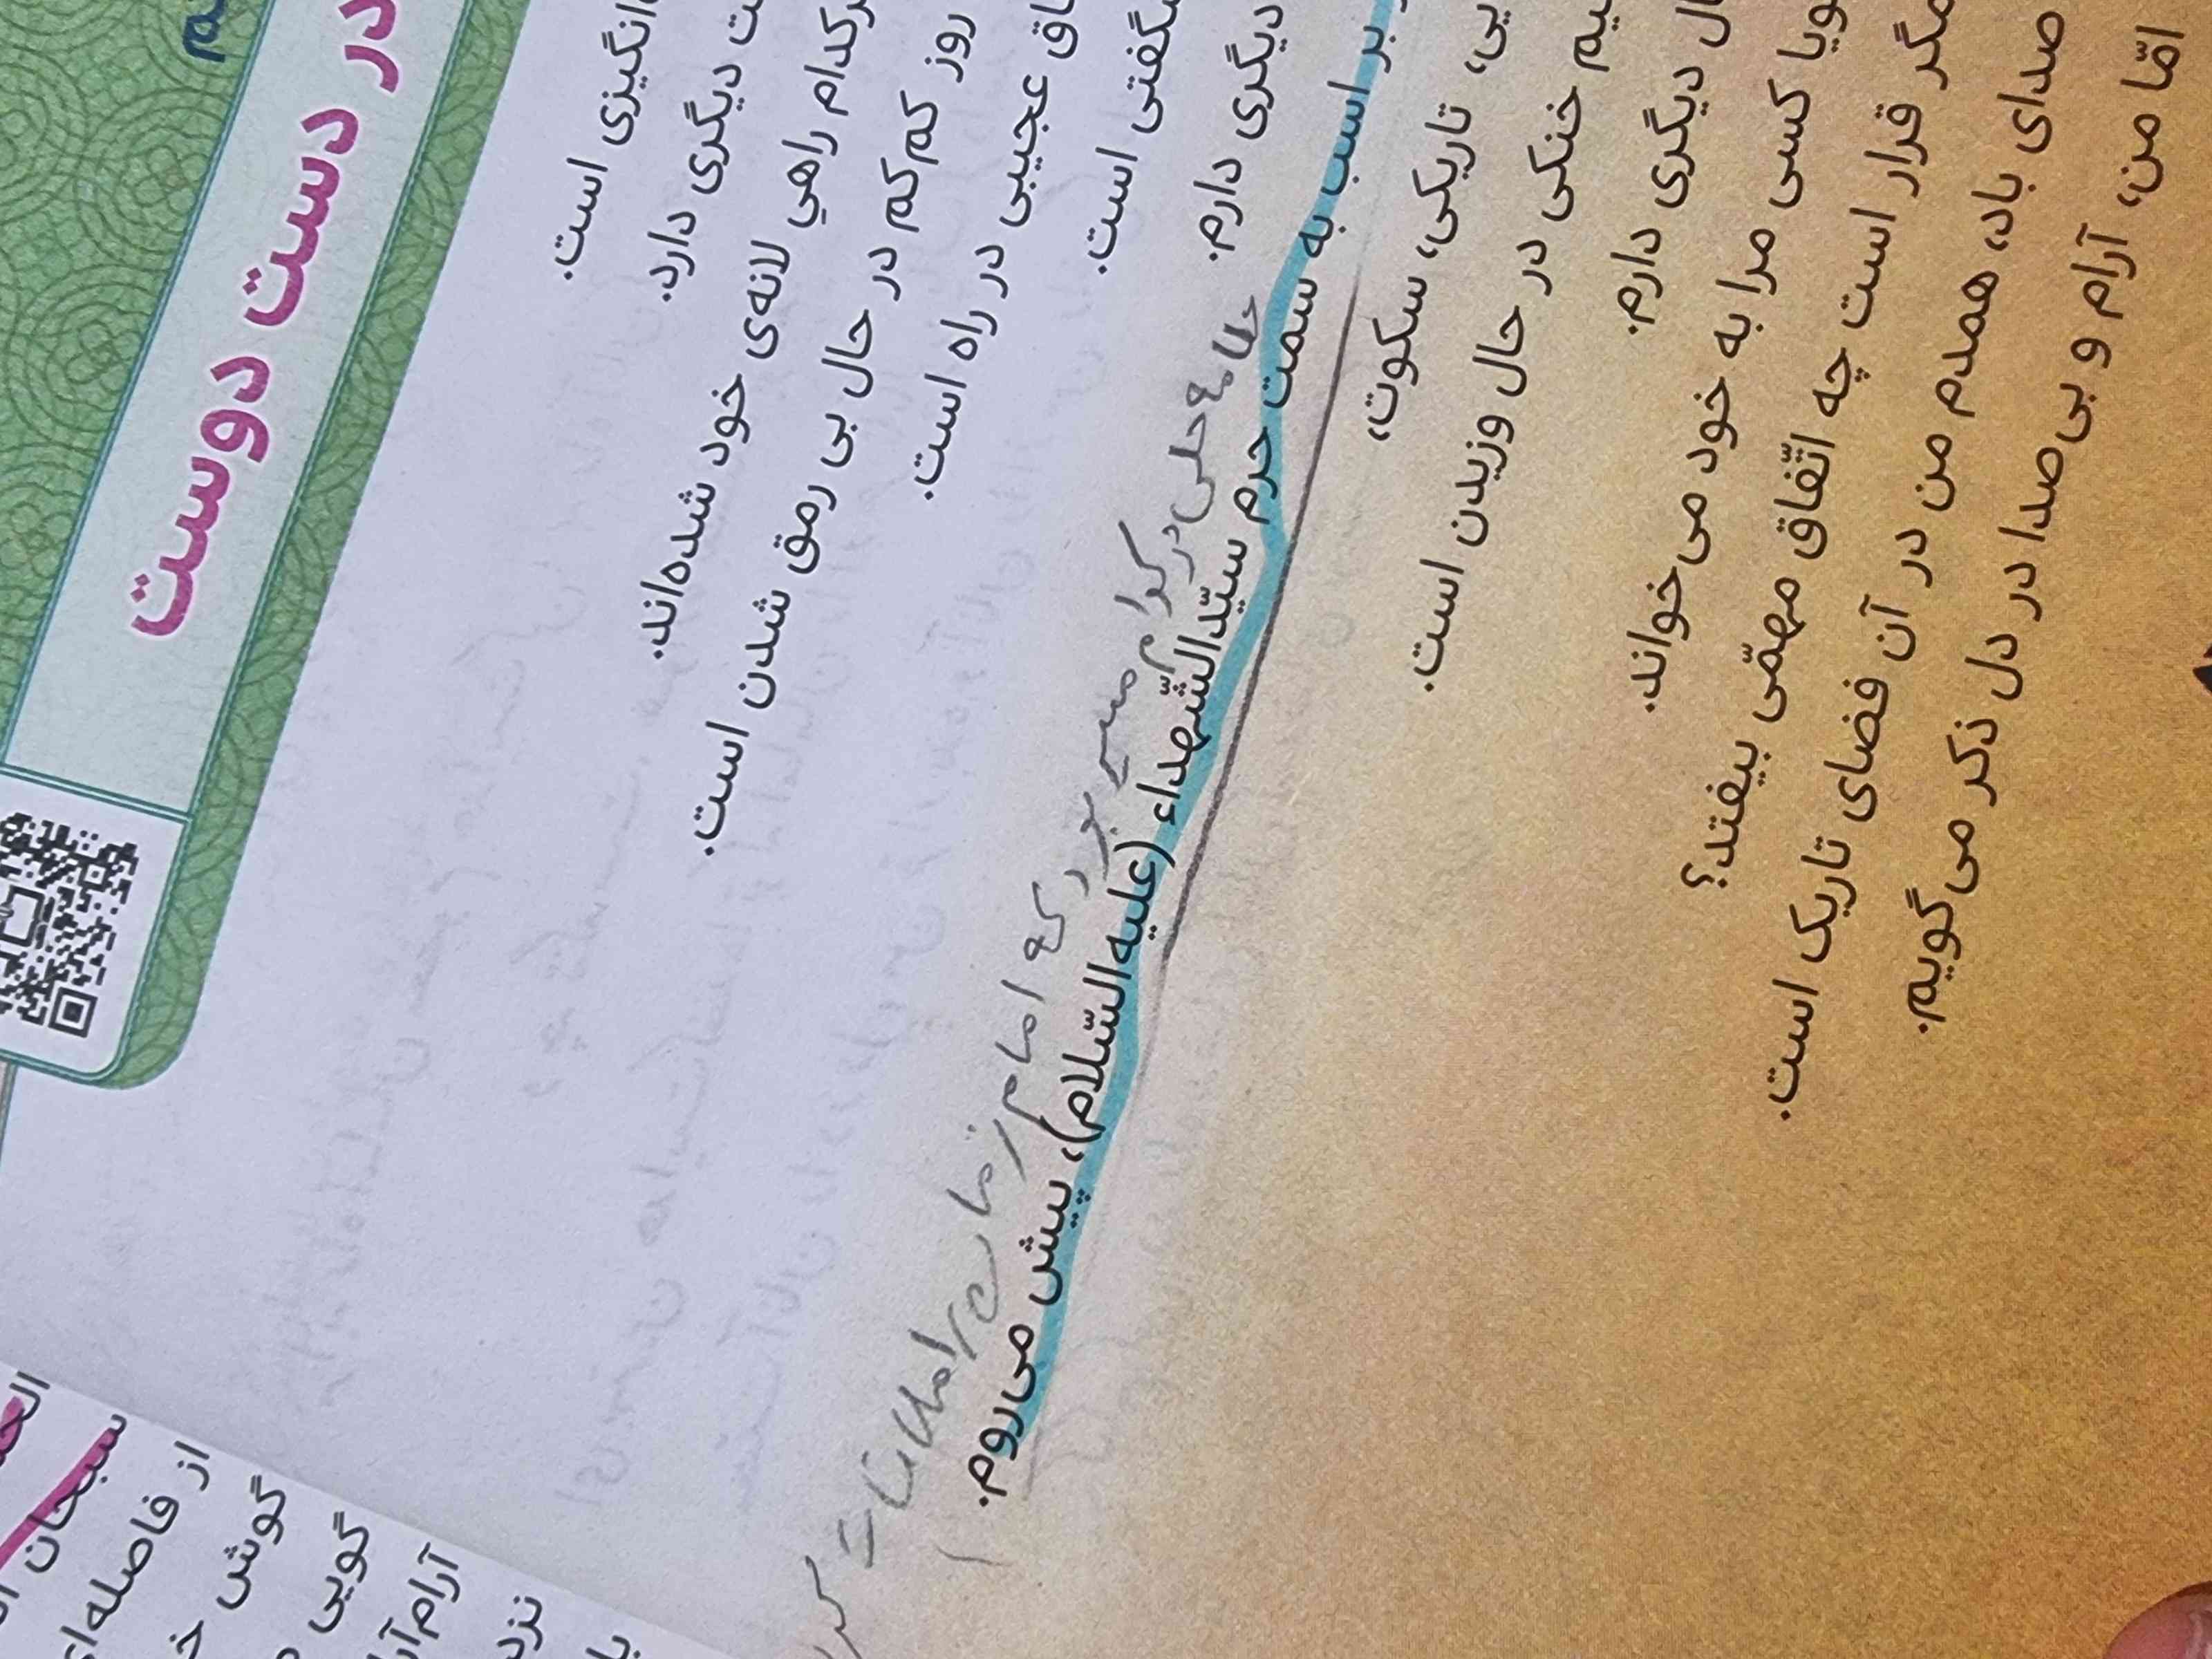 در دست دوست
است.
دیگری دارد.
راهیِ لانه‌ی خود شده‌اند.
روز کم‌کم در حال بی رمق شدن است.
عجیبی در راه است.
است.
دیگری دارم.
علامه حلی در کدام مسیر بود که امام زمان را ملاقات = کرد
بر اسب به سمت حرم سیّدالشّهداء (علیه‌السّلام)، پیش می‌روم.
تاریکی، سکوت،
خنکی در حال وزیدن است.
دیگری دارم.
کسی مرا به خود می‌خواند.
مگر قرار است چه اتّفاق مهمّی بیفتد؟
صدای باد، همدم من در آن فضای تاریک است.
امّا من، آرام و بی‌صدا در دل ذکر می‌گویم.
سبحان
از فاصله‌ای
گوش
گویی
نزد